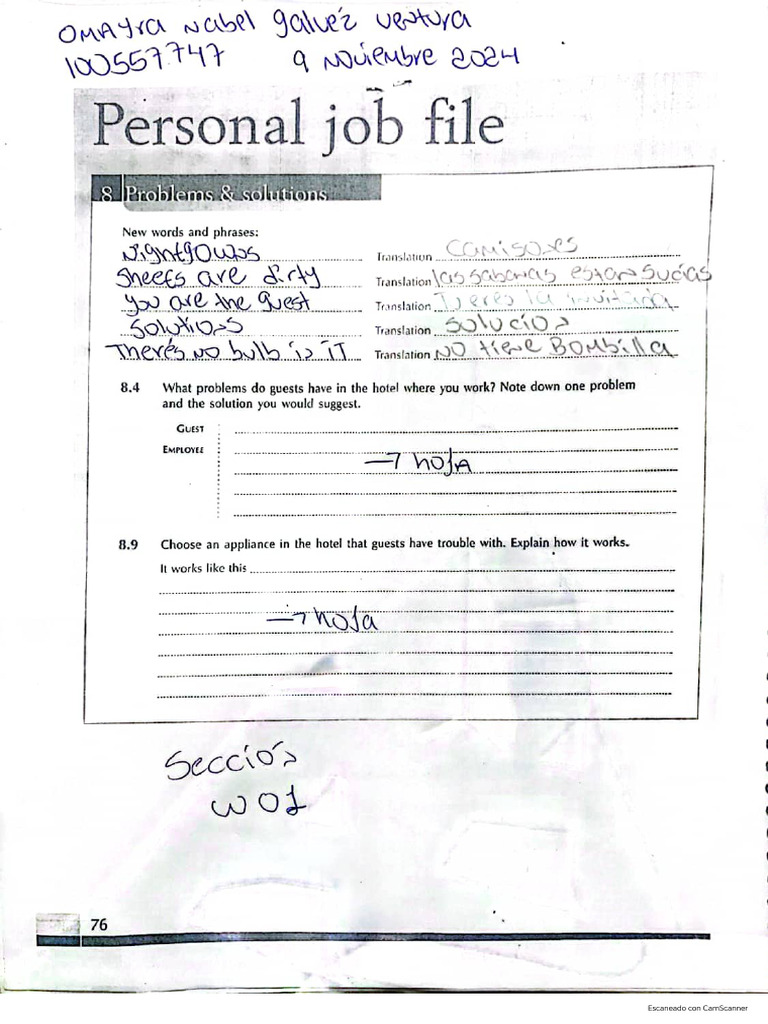 OMAYra Nabel galvéz ventura
100557747 9 Noviembre 2024
Personal job file
8 Problems & solutions
New words and phrases:
Nightgowns Translation Camisones
Sheets are dirty Translation las sabanas estan sucias
You are the guest Translation Tu eres la invitada
Solutions Translation Solucion
There's no bulb is iT Translation NO tiene BOMBilla
8.4 What problems do guests have in the hotel where you work? Note down one problem
and the solution you would suggest.
GUEST
EMPLOYEE
→ hojA
8.9 Choose an appliance in the hotel that guests have trouble with. Explain how it works.
It works like this
→ hoja
Secció́n
W01
76
Escaneado con CamScanner